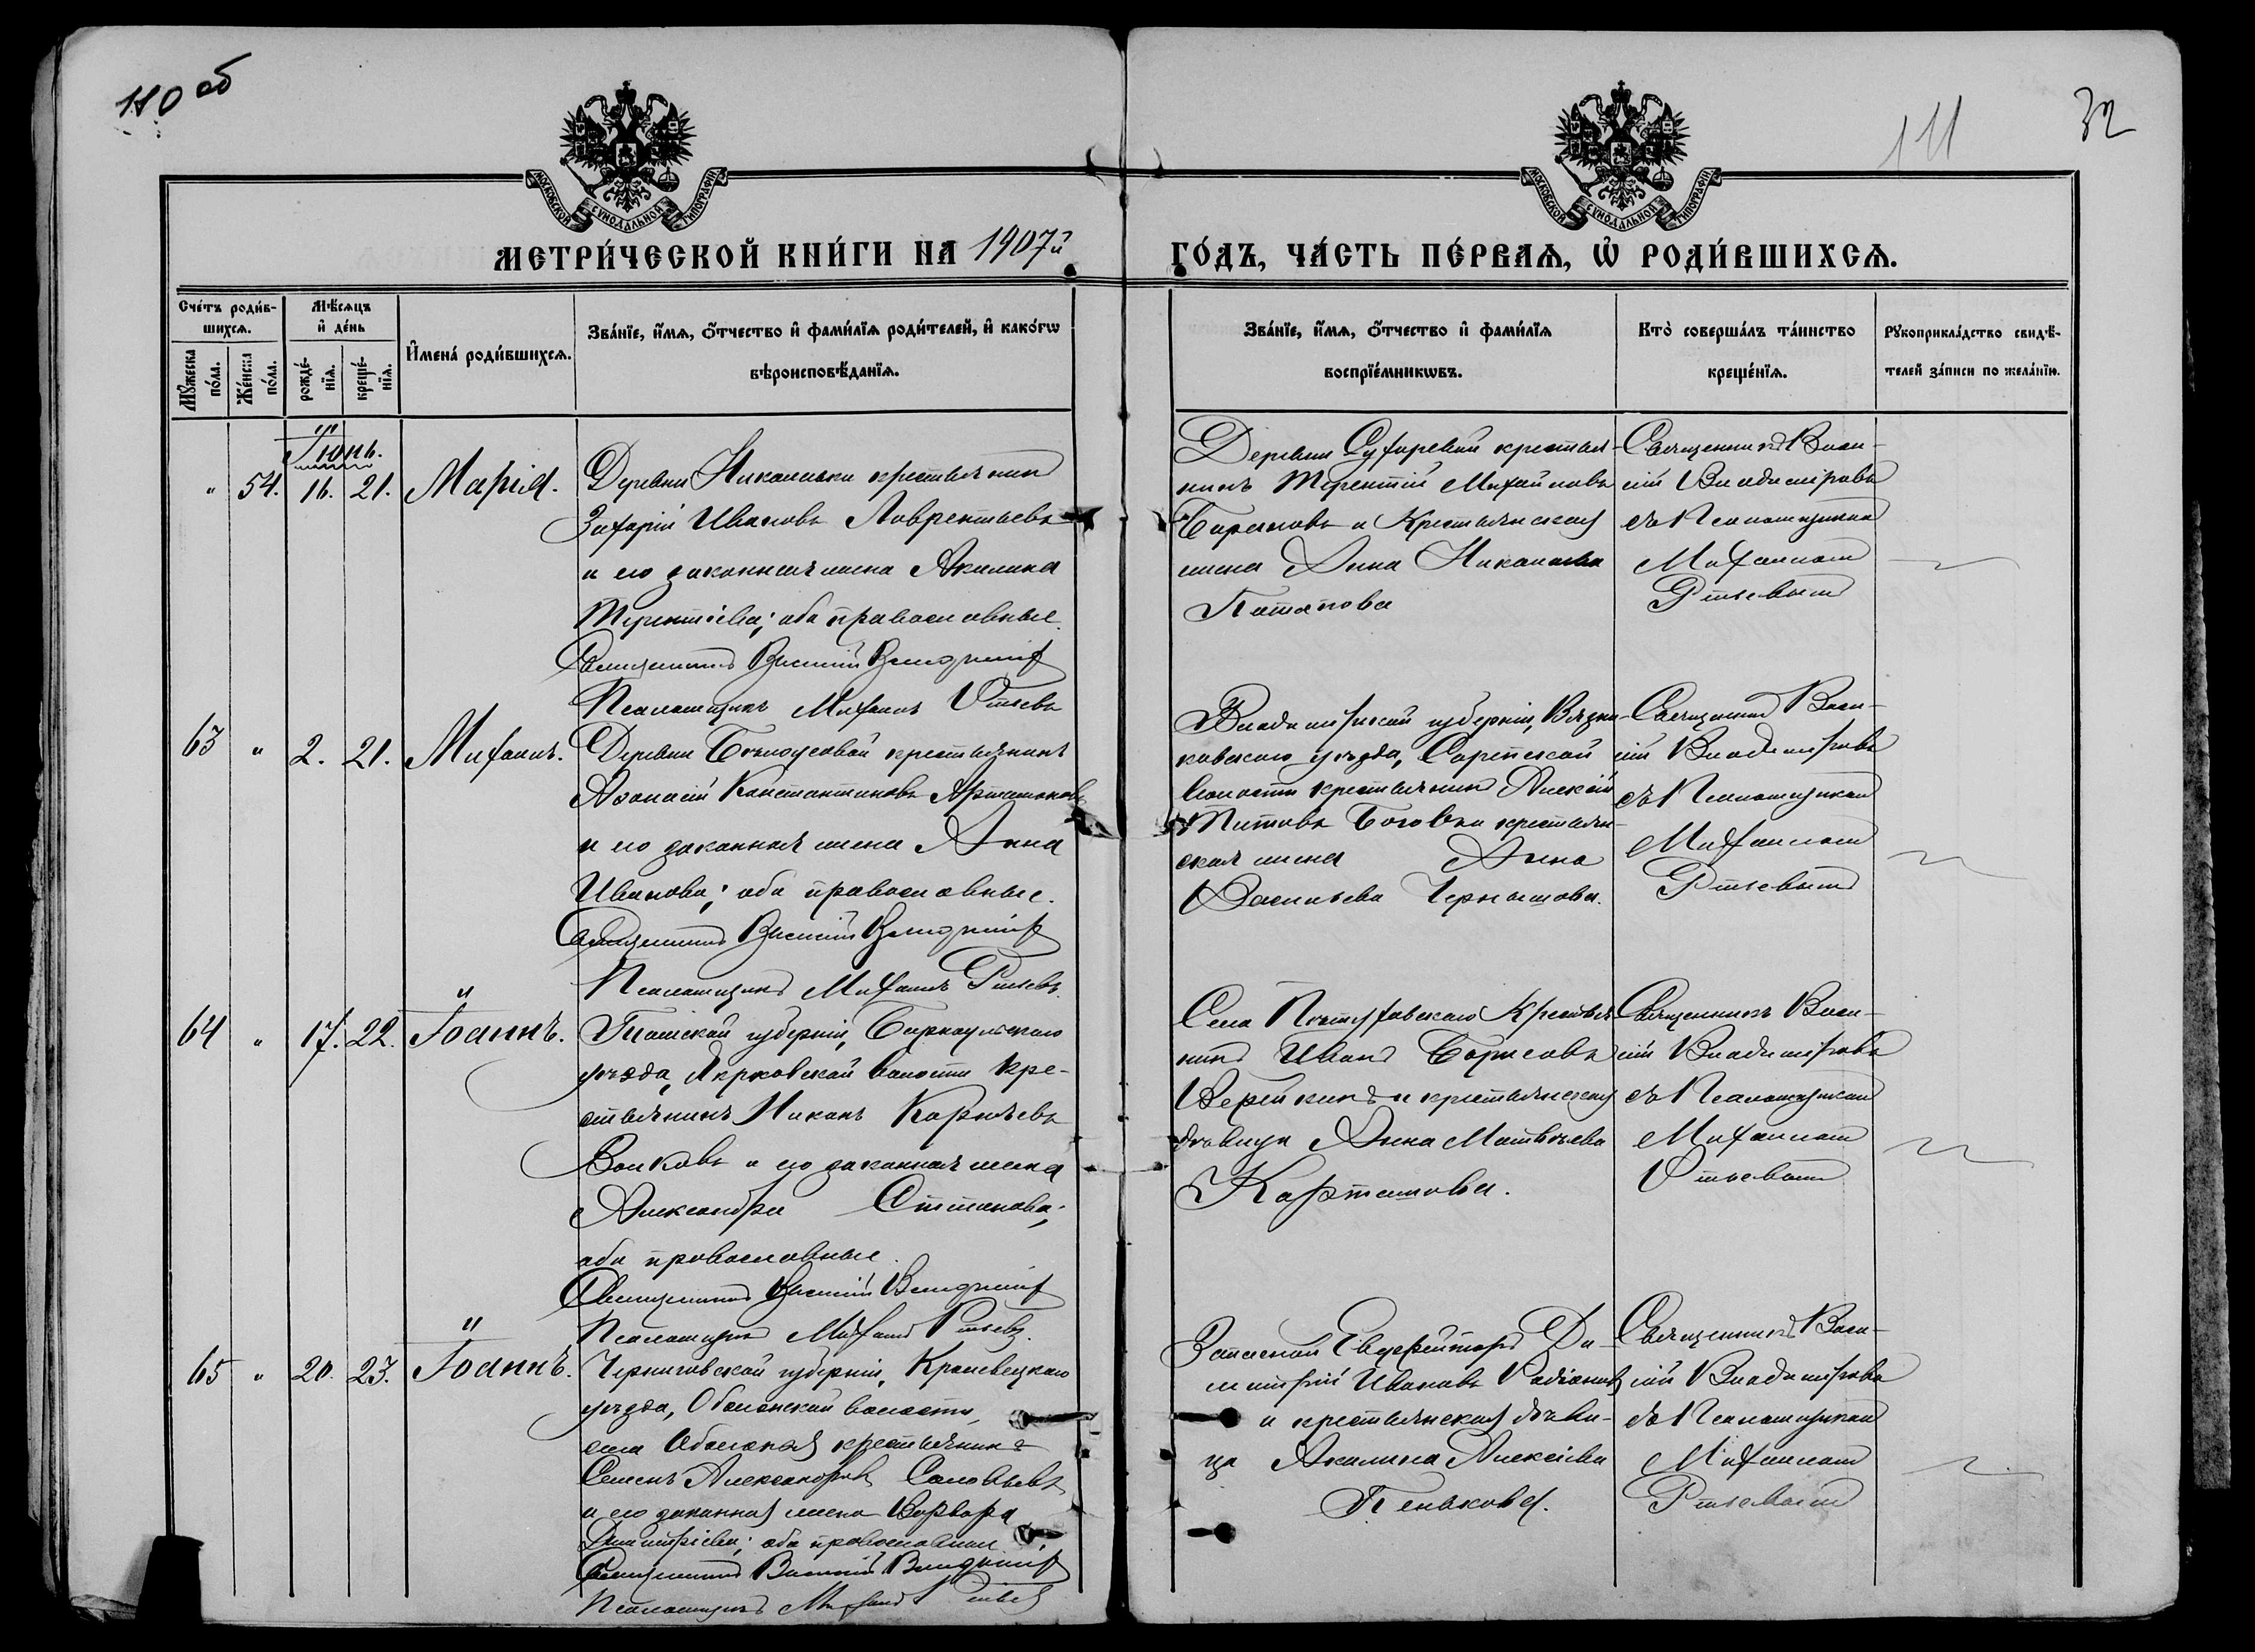 110 об
111
32
МОСКОВСКОЙ СѴНОДАЛЬНОЙ ТИПОГРАФІИ
МОСКОВСКОЙ СѴНОДАЛЬНОЙ ТИПОГРАФІИ
МЕТРИ́ЧЕСКОЙ КНИ́ГИ НА 1907й
ГО́ДЪ, ЧА́СТЬ ПЕ́РВАѦ, Ѡ҆ РОДИ́ВШИХСѦ.
Сче́тъ роди́в-
шихсѧ.
Мꙋ́жеска по́ла.
Же́нска по́ла.
Мѣ́сѧцъ
и҆ де́нь
рожде́-
нїѧ.
креще́-
нїѧ.
И҆мена̀ роди́вшихсѧ.
Зва́нїе, и҆́мѧ, ѻ҆́тчество и҆ фами́лїѧ роди́телей, и҆ како́гѡ
вѣроисповѣ́данїѧ.
Зва́нїе, и҆́мѧ, ѻ҆́тчество и҆ фами́лїѧ
воспрїе́мникѡвъ.
Кто̀ соверша́лъ та́инство
креще́нїѧ.
Рꙋкоприкла́дство свидѣ́-
телей за́писи по жела́нїю.
Іюнь.
" 54. 16. 21. Марія.
Деревни Николаевки крестьянинъ
Захарій Ивановъ Лаврентьевъ
и его законная жена Акилина
Терентіева; оба православные.
Священникъ Василій Владиміровъ
Псаломщикъ Михаилъ Ртьевъ
Деревни крестья-
нинъ Терентій Михайловъ
Барановъ и крестьянская
жена Анна Николаева
Потапова
Священникъ Васи-
лій Владиміровъ
съ Псаломщикомъ
Михаиломъ
Ртьевымъ
63 " 2. 21. Михаилъ.
Деревни Бѣлоусовой крестьянинъ
Аѳонасій Константиновъ Артамоновъ
и его законная жена Анна
Иванова; оба православные.
Священникъ Василій Владиміровъ
Псаломщикъ Михаилъ Ртьевъ.
Владимірской губерніи, Вязни-
ковскаго уѣзда, Сарыевской
волости крестьянинъ Алексій
Титовъ крестьян-
ская жена Анна
Васильева Чернышова.
Священникъ Васи-
лій Владиміровъ
съ Псаломщикомъ
Михаиломъ
Ртьевымъ
64 " 17. 22. Іоаннъ.
Томской губерніи, Барнаульскаго
уѣзда, волости кре-
стьянинъ Никонъ Корнѣевъ
Волковъ и его законная жена
Александра Степанова;
оба православные.
Священникъ Василій Владиміровъ
Псаломщикъ Михаилъ Ртьевъ.
Села Пѣтуховскаго крестья-
нинъ Иванъ Борисовъ
Верёвкинъ и крестьянская
дѣвица Анна Матвѣева
Карташова.
Священникъ Васи-
лій Владиміровъ
съ Псаломщикомъ
Михаиломъ
Ртьевымъ
65 " 20. 23. Іоаннъ.
Черниговской губерніи, Кролевецкаго
уѣзда, Оболонской волости,
села Оболонья крестьянинъ
Семенъ Александровъ Соловьевъ
и его законная жена Варвара
Димитріева; оба православные.
Священникъ Василій Владиміровъ
Псаломщикъ Михаилъ Ртьевъ
Запасный Ефрейторъ Ди-
митрій Ивановъ Родіоновъ
и крестьянская дѣви-
ца Акилина Алексіева
Пенькова.
Священникъ Васи-
лій Владиміровъ
съ Псаломщикомъ
Михаиломъ
Ртьевымъ